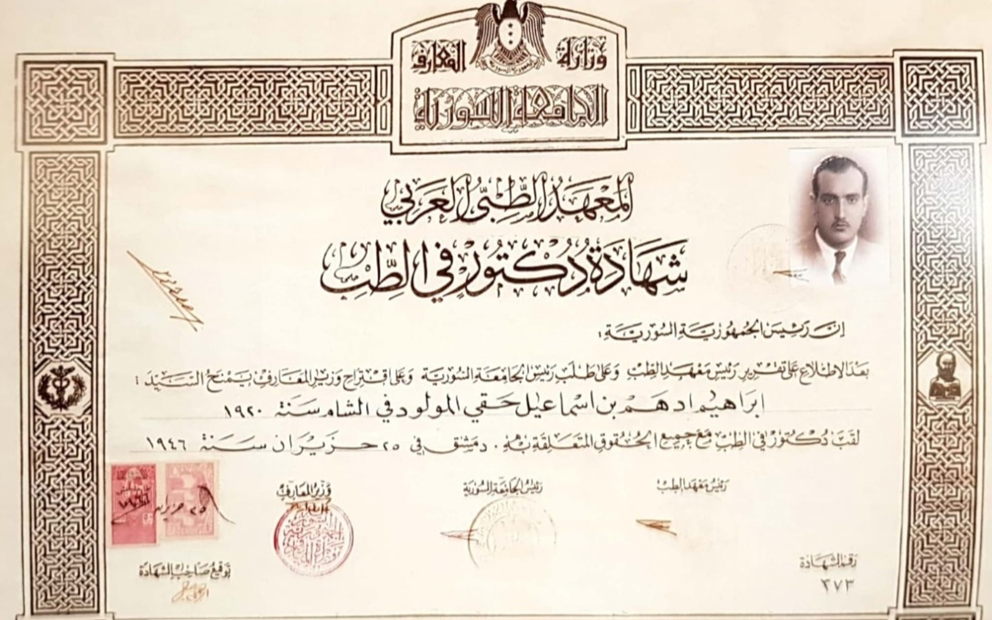 وزارة المعارف
الجامعة السورية
المعهد الطبي العربي
شهادة دكتور في الطب
إن رئيس الجمهورية السورية :
بعد الاطلاع على تقرير رئيس معهد الطب وعلى طلب رئيس الجامعة السورية وعلى اقتراح وزير المعارف بمنح السيد :
ابراهيم ادهم بن اسماعيل حقي المولود في الشام سنة ١٩٢٠
لقب دكتور في الطب مع جميع الحقوق المتعلقة به . دمشق في ٢٥ حزيران سنة ١٩٤٦
رئيس معهد الطب
رئيس الجامعة السورية
وزير المعارف
٢٥ حزيران
توقيع صاحب الشهادة
رقم الشهادة
٣٧٣